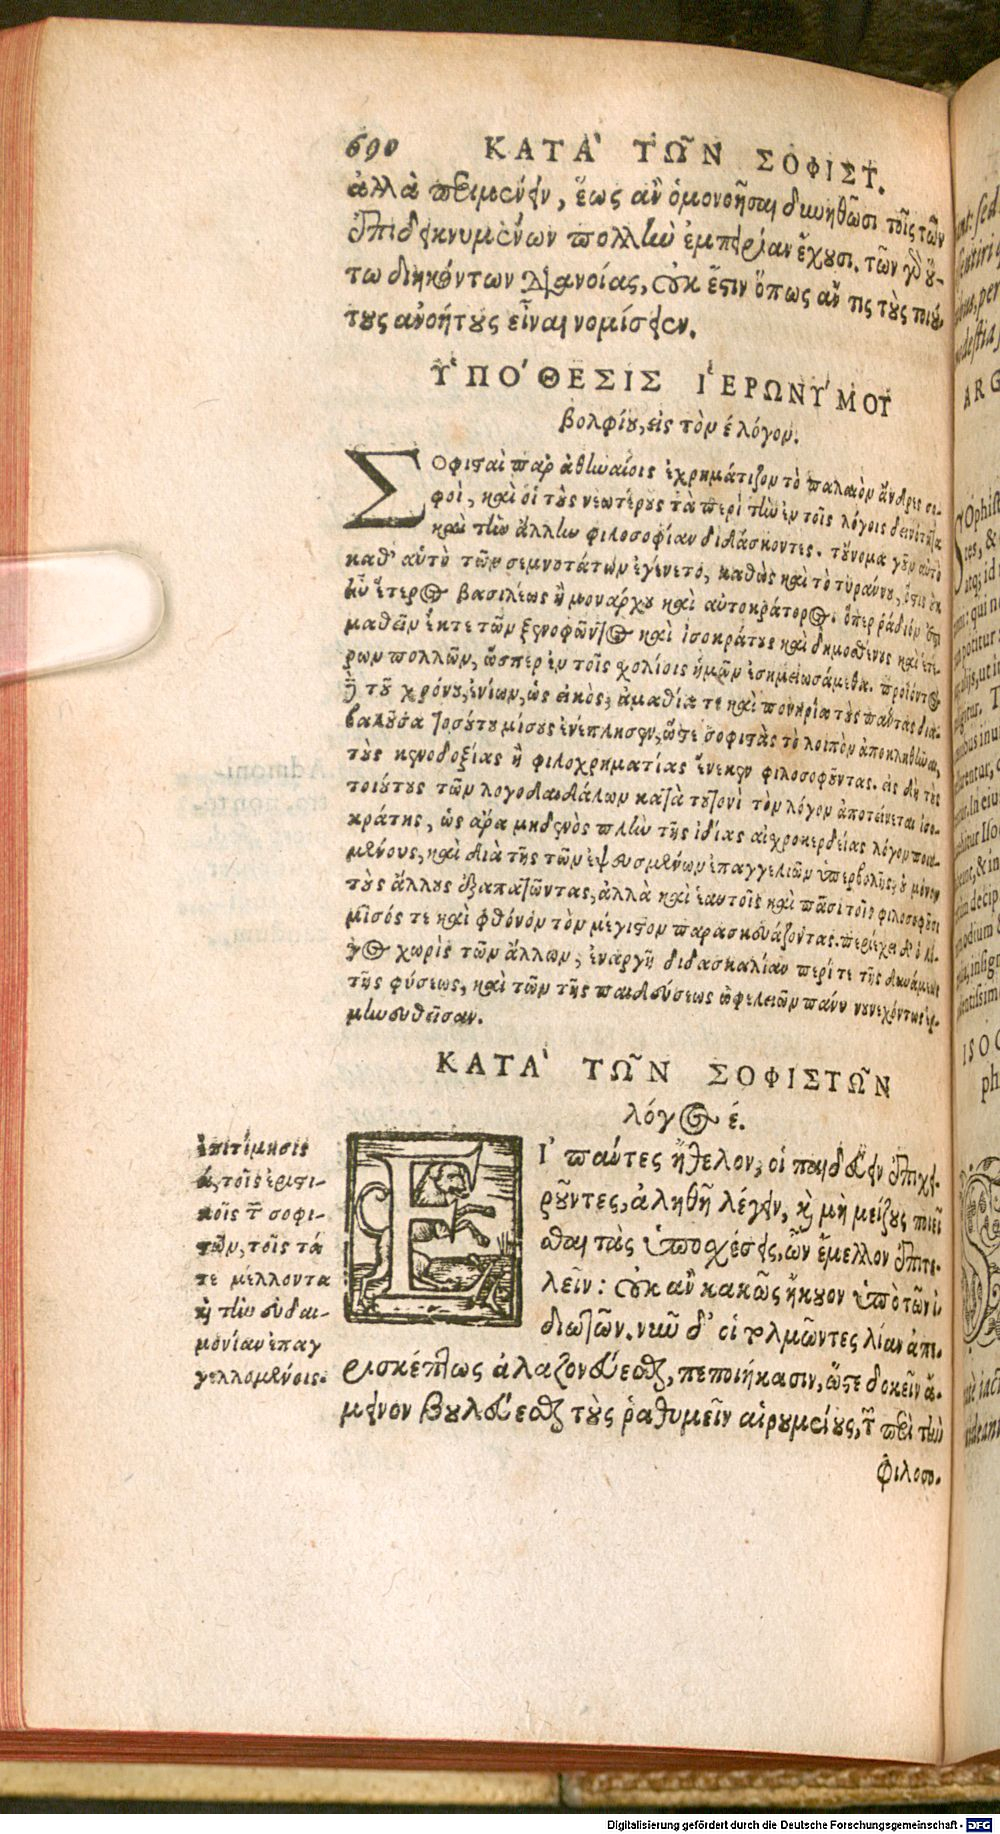 690 ΚΑΤΑ' ΤΩ͂Ν ΣΟΦΙΣΤ.
ἀλλὰ περιμένειν, ἕως ἂν ὁμονοῆσαι δυνηθῶσι τοῖς τῶν
ἐπιδεικνυμένων πολλὴν ἐμπειρίαν ἔχουσι. τῶν γὸ οὕ-
τω διηκόντων διανοίας, οὐκ ἔστιν ὅπως ἄν τις τοὺς τοιού-
τους ἀνοήτους εἶναι νομίσειεν.
ΥΠΟ'ΘΕΣΙΣ ΙΕΡΩΝΥ'ΜΟΥ
βολφίου, εἰς τὸν έ λόγον.
ΣΟφισταὶ παρ' ἀθηναίοις ἐχρημάτιζον τὸ παλαιὸν ἄνδρες σο-
φοὶ, καὶ οἱ τοὺς νεωτέρους τὰ περὶ τὴν ἐν τοῖς λόγοις δεινότητα
καὶ τὴν ἄλλην φιλοσοφίαν διδάσκοντες. τοὔνομα γοῦν αὐτὸ
καθ' αὑτὸ τῶν σεμνοτάτων ἐγένετο, καθὼς καὶ τὸ τυράννου,
ἕτερος βασιλέως ἢ μονάρχου καὶ αὐτοκράτορος. ὅπερ ῥάδιον
μαθεῖν ἔκ τε τῶν ξενοφῶντος καὶ ἰσοκράτους καὶ δημοσθένους καὶ ἑτέ-
ρων πολλῶν, ὥσπερ ἐν τοῖς σχολίοις ἡμῶν ἐσημειωσάμεθα. προϊόντος
τοῦ χρόνου, ἐνίων, ὡς εἰκὸς, ἀμαθία τε καὶ πονηρία τοὺς πάντας δια-
βαλοῦσα τοσούτου μίσους ἐνέπλησεν, ὥστε σοφιστὰς τὸ λοιπὸν ἀποκληθῆναι,
τοὺς κενοδοξίας ἢ φιλοχρηματίας ἕνεκεν φιλοσοφοῦντας. εἰς δὴ τοὺς
τοιούτους τῶν λογοδαιδάλων κατὰ τουτονὶ τὸν λόγον ἀποτείνεται ἰσο-
κράτης, ὡς ἄρα μηδενὸς πλὴν τῆς ἰδίας αἰσχροκερδείας λόγον ποιου-
μένους, καὶ διὰ τῆς τῶν ἐψευσμένων ἐπαγγελιῶν ὑπερβολῆς, οὐ μόνον
τοὺς ἄλλους ἐξαπατῶντας, ἀλλὰ καὶ ἑαυτοῖς καὶ πᾶσι τοῖς φιλοσοφοῦσι
μῖσός τε καὶ φθόνον τὸν μέγιστον παρασκευάζοντας. περιέχει δ' ὁ λό-
γος χωρὶς τῶν ἄλλων, ἐναργῆ διδασκαλίαν περί τε τῆς δυνάμεως
τῆς φύσεως, καὶ τῶν τῆς παιδεύσεως ὠφελειῶν πάνυ νουνεχόντως ἑρ-
μηνευθεῖσαν.
ΚΑΤΑ' ΤΩ͂Ν ΣΟΦΙΣΤΩ͂Ν
λόγος έ.
Ἐπιτίμησις
ά, τοῖς ἐριστι-
κοῖς τῶν σοφι-
στῶν, τοῖς τά
τε μέλλοντα
καὶ τὴν εὐδαι-
μονίαν ἐπαγ
γελλομένοις.
ΕΙ' πάντες ἤθελον, οἱ παιδεύειν ἐπιχει-
ροῦντες, ἀληθῆ λέγειν, καὶ μὴ μείζους ποιεῖ
σθαι τὰς ὑποσχέσεις, ὧν ἔμελλον ἐπιτε-
λεῖν: οὐκ ἂν κακῶς ἤκουον ὑπὸ τῶν ἰ
διωτῶν. νῦν δ' οἱ τολμῶντες λίαν ἀπε-
ρισκέπτως ἀλαζονεύεσθαι, πεποιήκασιν, ὥστε δοκεῖν ἄ-
μεινον βουλεύεσθαι τοὺς ῥᾳθυμεῖν αἱρουμένους, τῶν περὶ τὴν
φιλοσο-
Digitalisierung gefördert durch die Deutsche Forschungsgemeinschaft - DFG